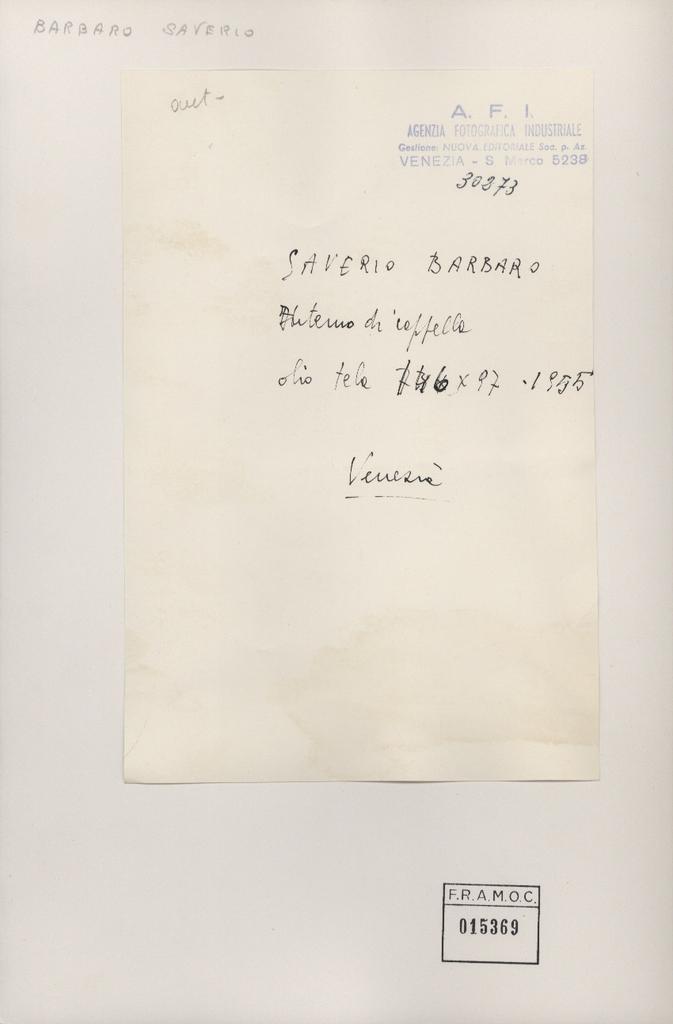 BARBARO SAVERIO
aut-
A. F. I.
AGENZIA FOTOGRAFICA INDUSTRIALE
Gestione: NUOVA EDITORIALE Soc. p. Az.
VENEZIA - S Marco 5239
30273
SAVERIO BARBARO
Interno di cappella
olio tela x 97 . 1955
Venezia
F.R.A.M.O.C.
015369